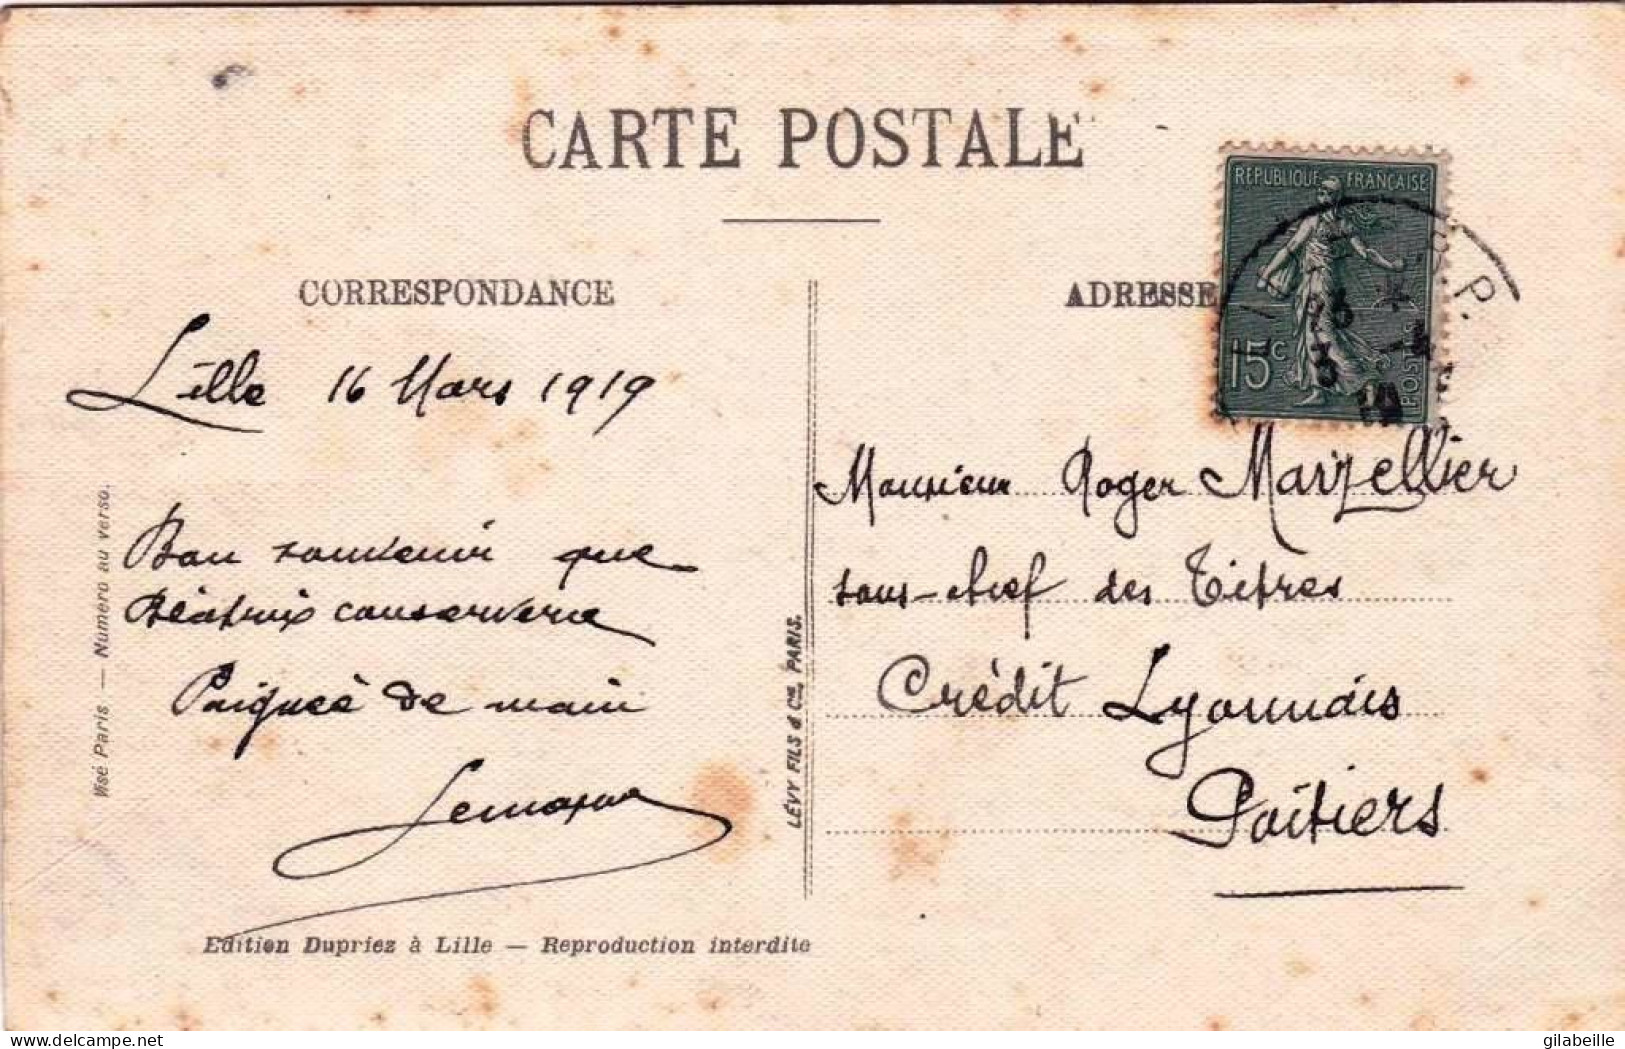 CARTE POSTALE
CORRESPONDANCE
Lille 16 Mars 1919
Bon souvenir que
Béatrix conservera
Poignée de main
ADRESSE
RÉPUBLIQUE FRANÇAISE
15c
POSTES
Monsieur Roger Marzellier
sous-chef des Titres
Crédit Lyonnais
Poitiers
Visé Paris — Numéro au verso.
LÉVY FILS & Cie, PARIS.
Edition Dupriez à Lille — Reproduction interdite
delcampe.net
gilabeille